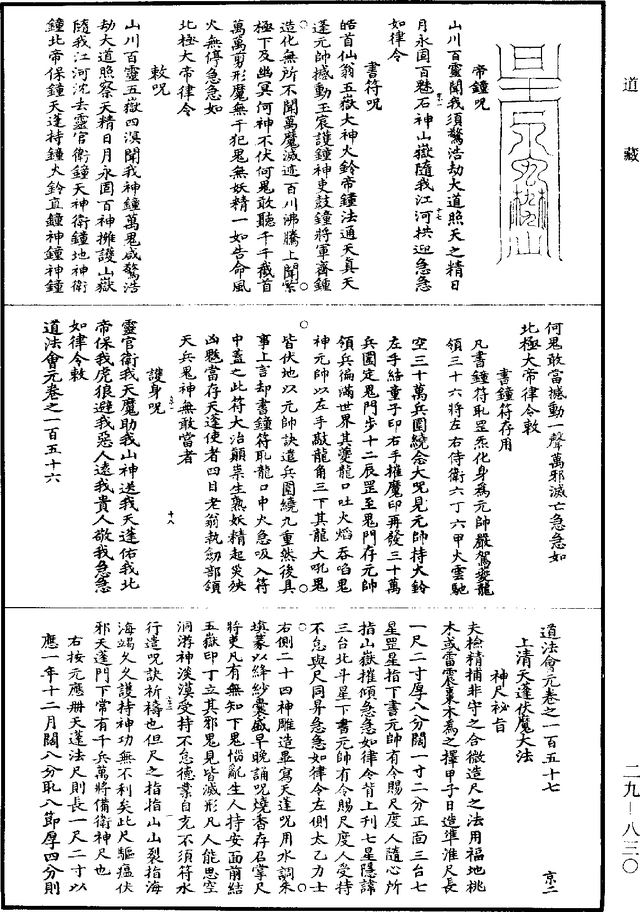 道藏
帝鐘呪
山川百靈聞我須驚浩劫大道照天之精日
月永固百魅石神山嶽隨我江河拱迎急急
如律令
書符呪
皓首仙翁五嶽大神火鈴帝鐘法通天真天
蓬元帥撼動玉宸護鐘神吏鼓鐘將軍齋鐘
造化無所不聞萬魔滅迹百川沸騰上聞紫
極下及幽冥何神不伏何鬼敢聽千千截首
萬萬剪形魔無干犯鬼無妖精一如告命風
火無停急急如
北極大帝律令
敕呪
山川百靈五嶽四溟聞我神鐘萬鬼咸驚浩
劫大道照察天精日月永固百神擁護山嶽
隨我江河沈去靈官衛鐘天神衛鐘地神衛
鐘北帝保鐘天蓬持鐘火鈴直鐘神鐘神鐘
何鬼敢當撼動一聲萬邪滅亡急急如
北極大帝律令敕
書鐘符存用
凡書鐘符取罡炁化身為元帥嚴駕夔龍
領三十六將左右侍衛六丁六甲火雲馳
空三十萬兵圍繞念大呪見元帥持大鈴
左手結童子印右手摧魔印再發三十萬
兵圍定鬼門步十二辰罡至鬼門存元帥
領兵徧滿世界其夔龍口吐火焰吞啗鬼
神元帥以左手敲龍角三下其龍大吼鬼
皆伏地以元帥訣遣兵圍繞九重然後具
事上言却書鐘符取龍口中火急吸入符
中蓋之此符大治顛祟生熟妖精起災殃
凶魃當存天蓬使者四目老翁執劒部領
天兵鬼神無敢當者
護身呪
靈官衛我天魔助我山神送我天蓬佑我北
帝保我虎狼避我惡人遠我貴人敬我急急
如律令敕
道法會元卷之一百五十六
十八
道法會元卷之一百五十七
京二
上清天蓬伏魔大法
神尺祕旨
夫檢精捕非守之合微造尺之法用福地桃
木或雷震棗木為之擇甲子日造準淮尺長
一尺二寸厚八分闊一寸二分正面三台七
星罡星指下書元帥有令賜尺度人隨心所
指山嶽摧傾急急如律令背上刊七星隱諱
三台北斗星下書元帥有令賜尺度人受持
不怠與尺同昇急急如律令左側太乙力士
右側二十四神雕造竝寫天蓬呪用水調朱
填篆以絳紗囊盛早晚誦呪燒香存召掌尺
將吏凡有無知下鬼惱亂生人持安面前結
五嶽印丁立其邪鬼見皆滅形凡人能思空
洞游神淡漠受持不怠德業自充不須符水
行造呪訣祈禱也但尺之指指山山裂指海
海竭久久護持神功無不利矣此尺驅瘟伏
邪天蓬門下常有千兵萬將備衛神尺也
右按元應冊天蓬法尺則長一尺二寸以
應一年十二月闊八分取八節厚四分則
二九—八三〇